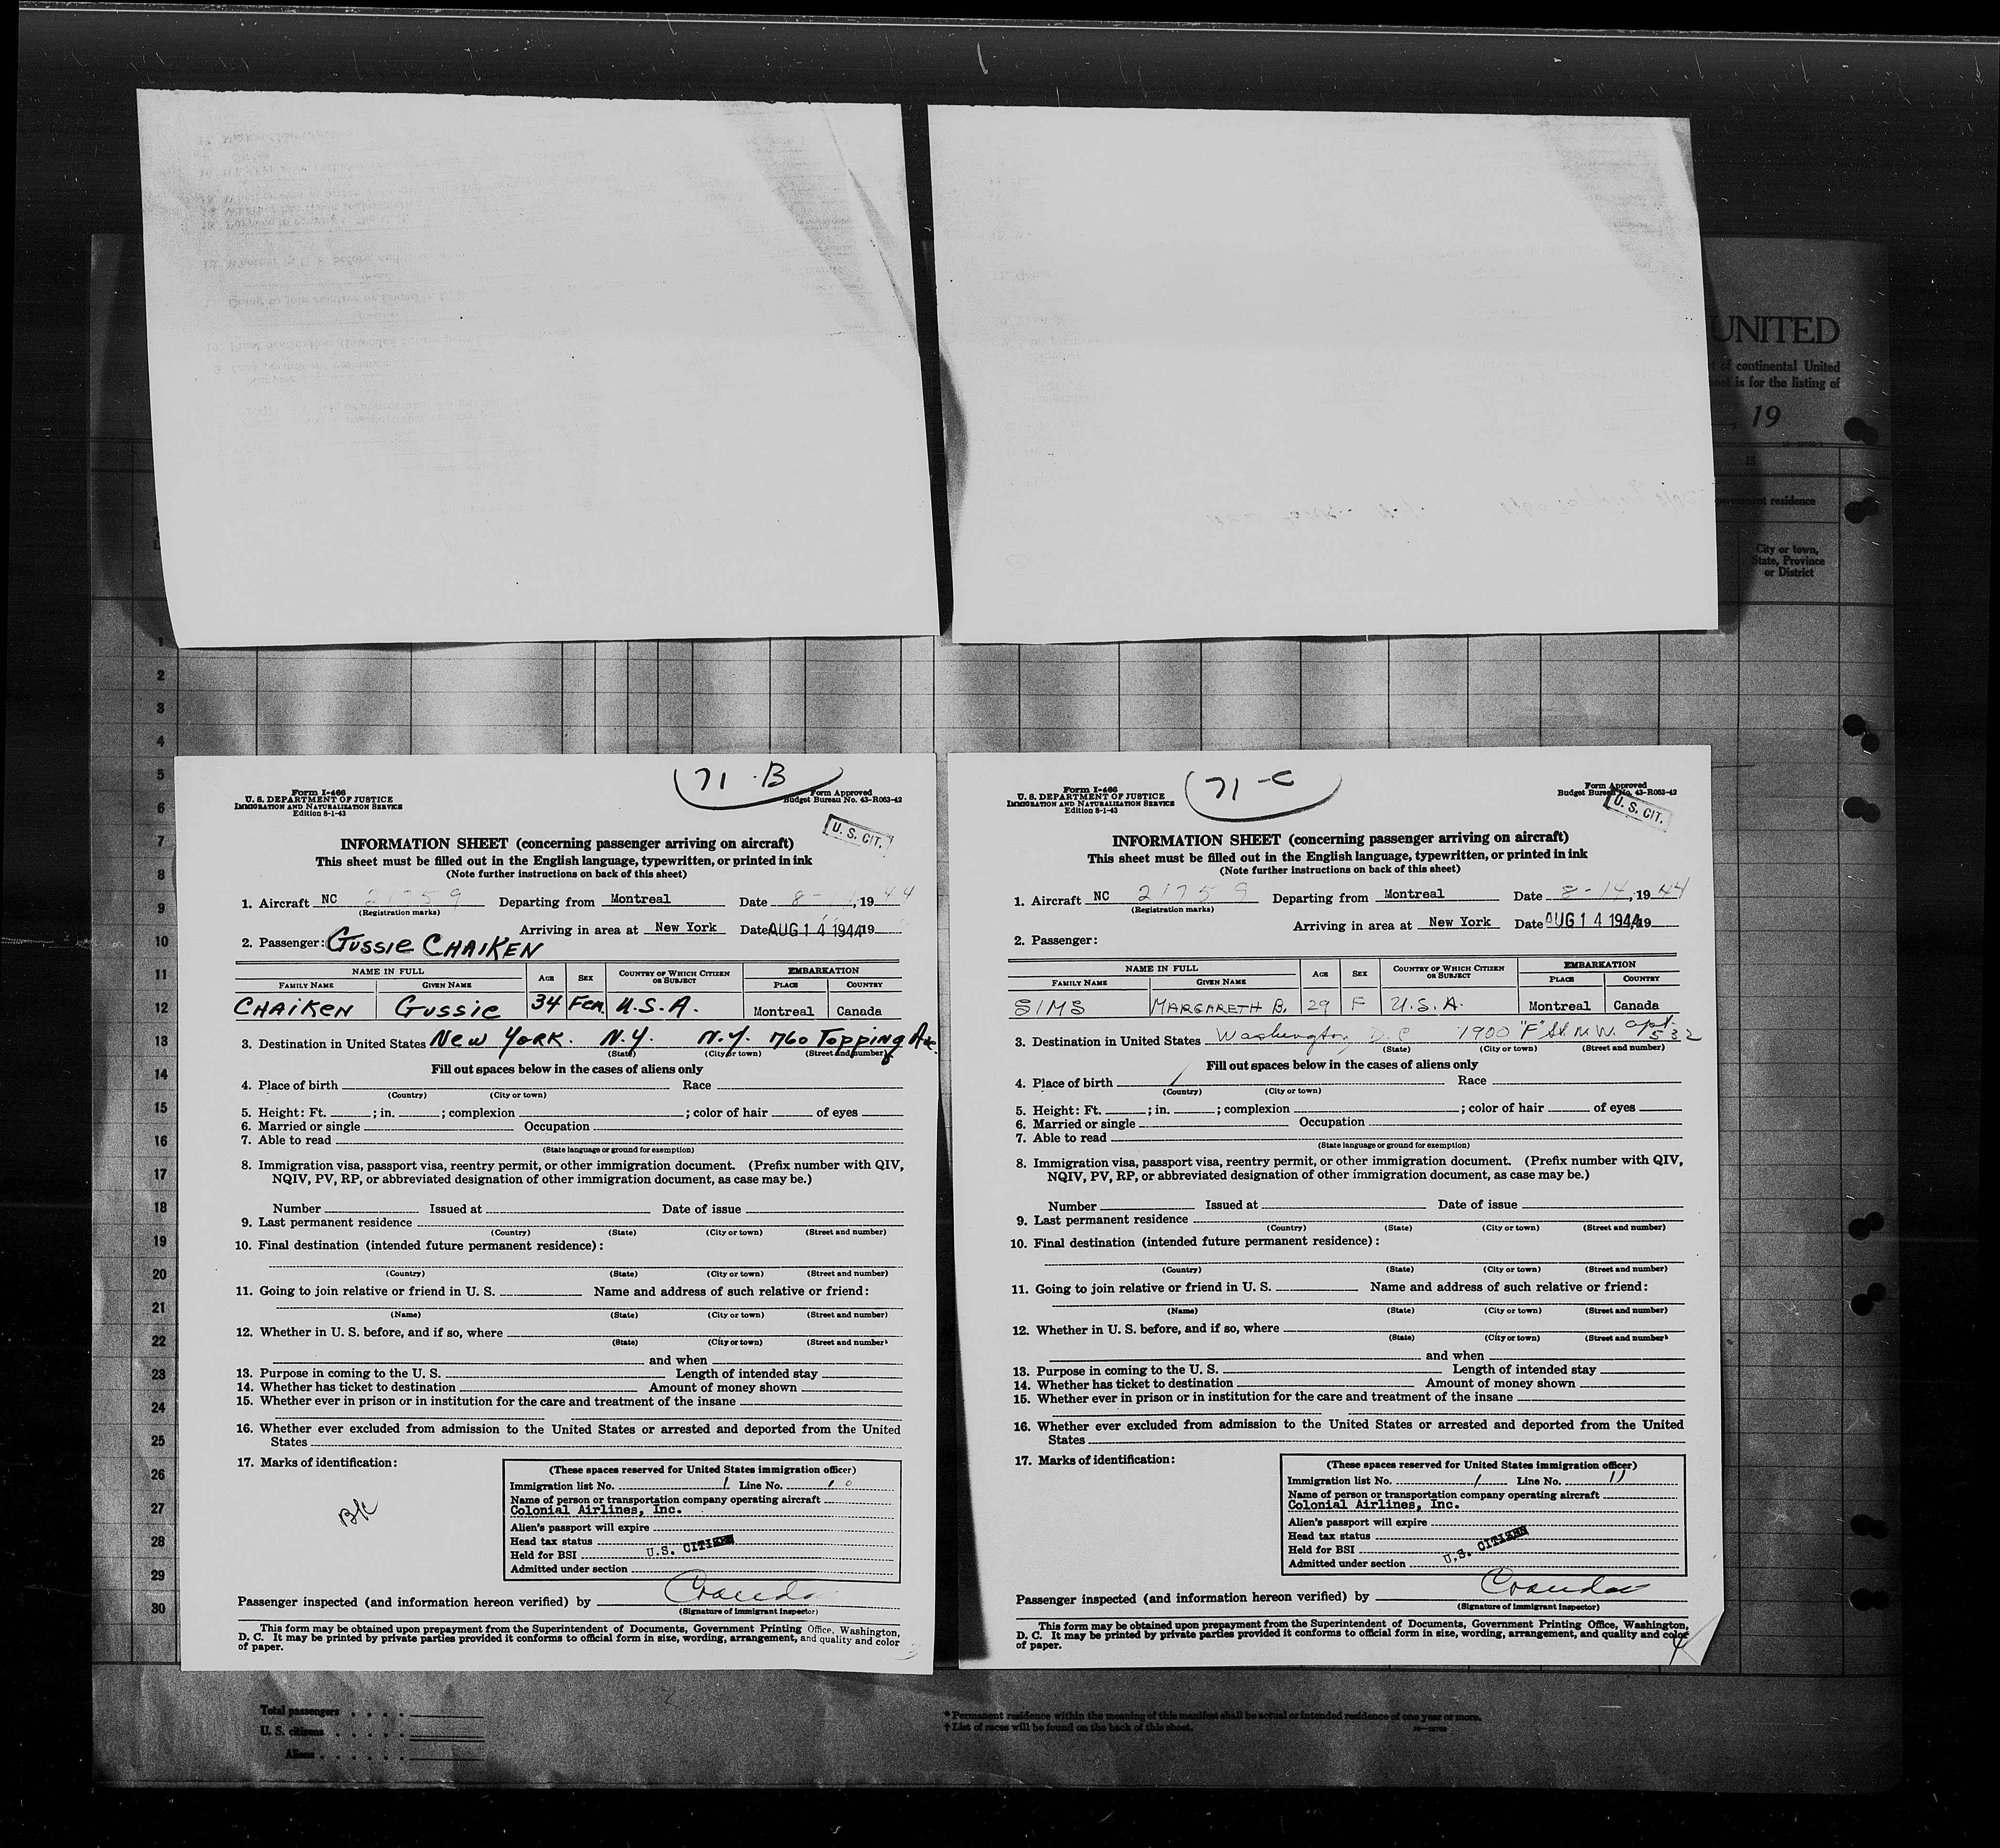 UNITED
of continental United
is for the listing of
, 19
15
permanent residence
City or town,
State, Province
or District
1
2
3
4
5
6
7
8
9
10
11
12
13
14
15
16
17
18
19
20
21
22
23
24
25
26
27
28
29
30
71-B
Form I-466
U. S. DEPARTMENT OF JUSTICE
IMMIGRATION AND NATURALIZATION SERVICE
Edition 8-1-43
Form Approved
Budget Bureau No. 43-R063-42
U. S. CIT.
INFORMATION SHEET (concerning passenger arriving on aircraft)
This sheet must be filled out in the English language, typewritten, or printed in ink
(Note further instructions on back of this sheet)
1. Aircraft NC 21759 Departing from Montreal Date 8-14, 1944
(Registration marks)
Arriving in area at New York Date AUG 14 1944 19
2. Passenger: Gussie CHAIKEN
NAME IN FULL AGE SEX COUNTRY OF WHICH CITIZEN OR SUBJECT EMBARKATION
FAMILY NAME GIVEN NAME PLACE COUNTRY
CHAIKEN Gussie 34 Fem. U.S.A. Montreal Canada
3. Destination in United States New York. N.Y. N.Y. 1760 Topping Ave.
(State) (City or town) (Street and number)
Fill out spaces below in the cases of aliens only
4. Place of birth Race
(Country) (City or town)
5. Height: Ft. ; in. ; complexion ; color of hair of eyes
6. Married or single Occupation
7. Able to read
(State language or ground for exemption)
8. Immigration visa, passport visa, reentry permit, or other immigration document. (Prefix number with QIV,
NQIV, PV, RP, or abbreviated designation of other immigration document, as case may be.)
Number Issued at Date of issue
9. Last permanent residence
(Country) (State) (City or town) (Street and number)
10. Final destination (intended future permanent residence):
(Country) (State) (City or town) (Street and number)
11. Going to join relative or friend in U. S. Name and address of such relative or friend:
(Name) (State) (City or town) (Street and number)
12. Whether in U. S. before, and if so, where
(State) (City or town) (Street and number)
and when
13. Purpose in coming to the U. S. Length of intended stay
14. Whether has ticket to destination Amount of money shown
15. Whether ever in prison or in institution for the care and treatment of the insane
16. Whether ever excluded from admission to the United States or arrested and deported from the United
States
17. Marks of identification:
(These spaces reserved for United States immigration officer)
Immigration list No. 1 Line No. 10
Name of person or transportation company operating aircraft
Colonial Airlines, Inc.
Alien's passport will expire
Head tax status
Held for BSI U.S. CITIZEN
Admitted under section
Passenger inspected (and information hereon verified) by
(Signature of immigrant inspector)
This form may be obtained upon prepayment from the Superintendent of Documents, Government Printing Office, Washington,
D. C. It may be printed by private parties provided it conforms to official form in size, wording, arrangement, and quality and color
of paper.
3
71-C
Form I-466
U. S. DEPARTMENT OF JUSTICE
IMMIGRATION AND NATURALIZATION SERVICE
Edition 8-1-43
Form Approved
Budget Bureau No. 43-R063-42
U. S. CIT.
INFORMATION SHEET (concerning passenger arriving on aircraft)
This sheet must be filled out in the English language, typewritten, or printed in ink
(Note further instructions on back of this sheet)
1. Aircraft NC 21759 Departing from Montreal Date 8-14, 1944
(Registration marks)
Arriving in area at New York Date AUG 14 1944 19
2. Passenger:
NAME IN FULL AGE SEX COUNTRY OF WHICH CITIZEN OR SUBJECT EMBARKATION
FAMILY NAME GIVEN NAME PLACE COUNTRY
SIMS MARGARETH B. 29 F U.S.A. Montreal Canada
3. Destination in United States Washington, D.C 1900 "F" St. N.W. apt. 532
(State) (City or town) (Street and number)
Fill out spaces below in the cases of aliens only
4. Place of birth Race
(Country) (City or town)
5. Height: Ft. ; in. ; complexion ; color of hair of eyes
6. Married or single Occupation
7. Able to read
(State language or ground for exemption)
8. Immigration visa, passport visa, reentry permit, or other immigration document. (Prefix number with QIV,
NQIV, PV, RP, or abbreviated designation of other immigration document, as case may be.)
Number Issued at Date of issue
9. Last permanent residence
(Country) (State) (City or town) (Street and number)
10. Final destination (intended future permanent residence):
(Country) (State) (City or town) (Street and number)
11. Going to join relative or friend in U. S. Name and address of such relative or friend:
(Name) (State) (City or town) (Street and number)
12. Whether in U. S. before, and if so, where
(State) (City or town) (Street and number)
and when
13. Purpose in coming to the U. S. Length of intended stay
14. Whether has ticket to destination Amount of money shown
15. Whether ever in prison or in institution for the care and treatment of the insane
16. Whether ever excluded from admission to the United States or arrested and deported from the United
States
17. Marks of identification:
(These spaces reserved for United States immigration officer)
Immigration list No. 1 Line No. 11
Name of person or transportation company operating aircraft
Colonial Airlines, Inc.
Alien's passport will expire
Head tax status
Held for BSI U.S. CITIZEN
Admitted under section
Passenger inspected (and information hereon verified) by
(Signature of immigrant inspector)
This form may be obtained upon prepayment from the Superintendent of Documents, Government Printing Office, Washington,
D. C. It may be printed by private parties provided it conforms to official form in size, wording, arrangement, and quality and color
of paper.
4
Total passengers
U. S. citizens
Aliens
* Permanent residence within the meaning of this manifest shall be actual or intended residence of one year or more.
† List of races will be found on the back of this sheet.